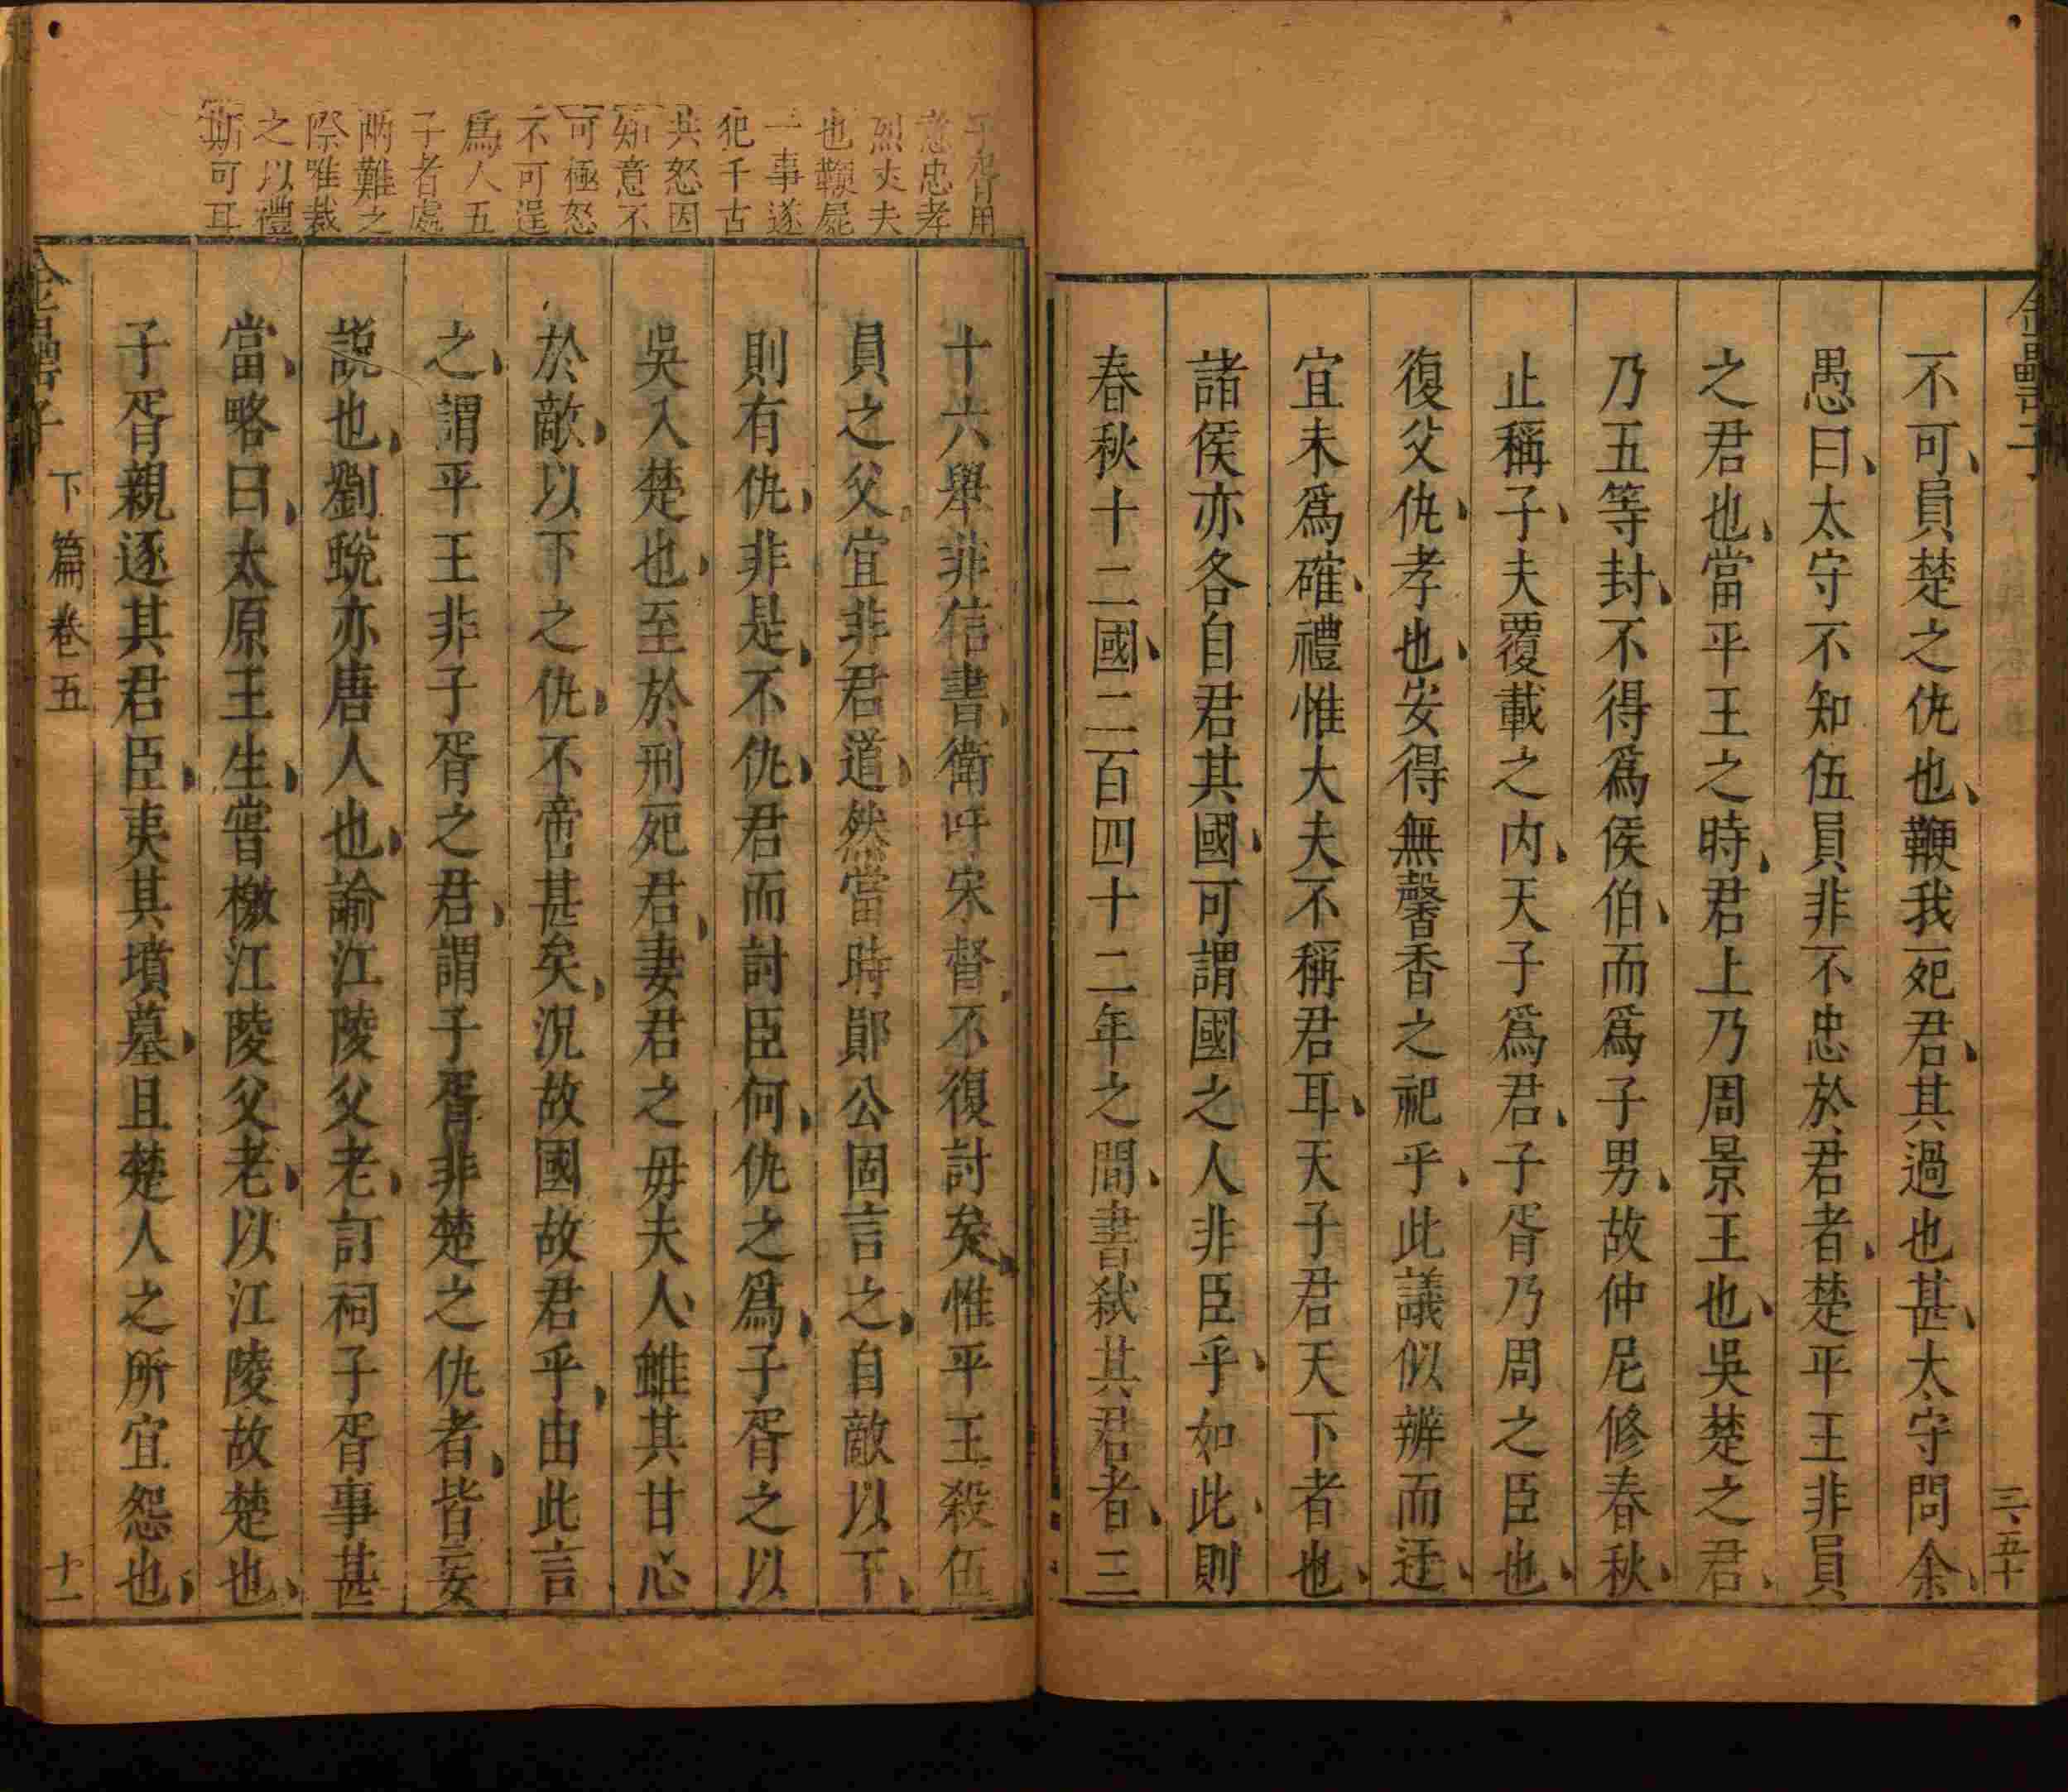 金罍子
三五十
不可員楚之仇也鞭我死君其過也甚太守問余
愚曰太守不知伍員非不忠於君者楚平王非員
之君也當平王之時君上乃周景王也吳楚之君
乃五等封不得爲侯伯而爲子男故仲尼修春秋
止稱子夫覆載之内天子爲君子胥乃周之臣也
復父仇孝也安得無馨香之祀乎此議似辨而迂
宜未爲確禮惟大夫不稱君耳天子君天下者也
諸侯亦各自君其國可謂國之人非臣乎如此則
春秋十二國二百四十二年之間書弑其君者三
子胥用
意忠孝
烈丈夫
也鞭屍
一事遂
犯千古
共怒因
知意不
可極怒
不可逞
爲人五
子者處
兩難之
際唯裁
之以禮
斯可耳
十六舉非信書衛吁宋督不復討矣惟平王殺伍
員之父宜非君道然當時鄖公固言之自敵以下
則有仇非是不仇君而討臣何仇之爲子胥之以
吳入楚也至於刑死君妻君之毋夫人雖其甘心
於敵以下之仇不啻甚矣況故國故君乎由此言
之謂平王非子胥之君謂子胥非楚之仇者皆妄
説也劉蛻亦唐人也諭江陵父老訂祠子胥事甚
當略曰太原王生嘗檄江陵父老以江陵故楚也
子胥親逐其君臣夷其墳墓且楚人之所宜怨也
金罍子 下篇卷五 十一